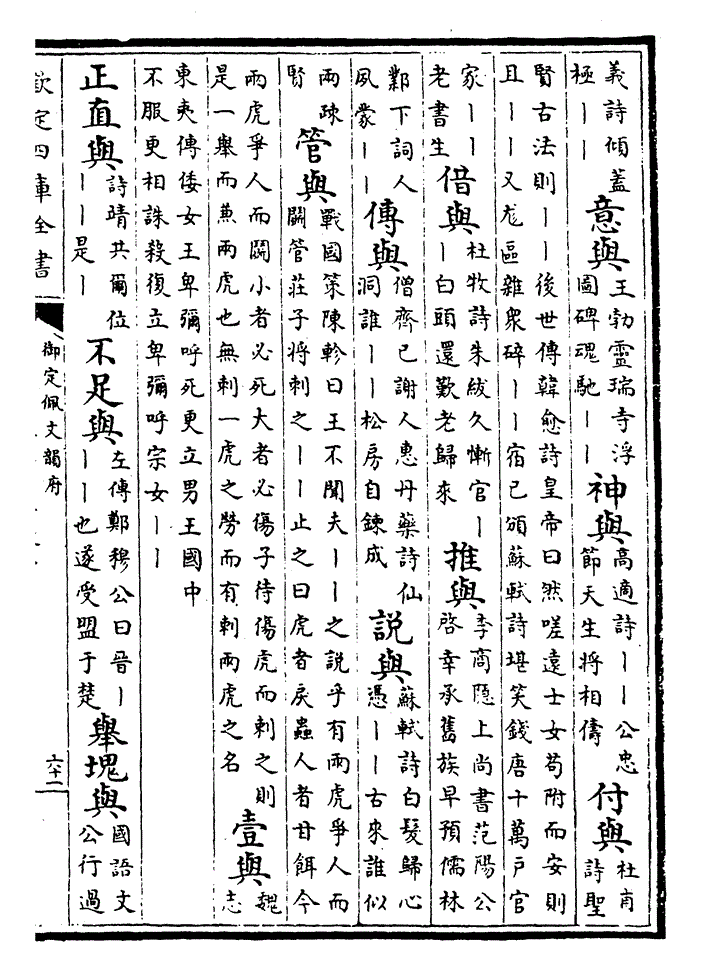 義詩傾蓋
極丨丨
意與
王勃靈瑞寺浮
圖碑魂馳丨丨
神與
高適詩丨丨公忠
節天生將相儔
付與
杜甫
詩聖
賢古法則丨丨後世傳韓愈詩皇帝曰然嗟遠士女苟附而安則
且丨丨又尨區雜衆碎丨丨宿已頒蘇軾詩堪笑錢唐十萬戶官
家丨丨
老書生
借與
杜牧詩朱紱久慚官丨
丨白頭還歎老歸來
推與
李商隱上尚書范陽公
啓幸承舊族早預儒林
鄴下詞人
夙蒙丨丨
傳與
僧齊己謝人惠丹藥詩仙
洞誰丨丨松房自鍊成
説與
蘇軾詩白髮歸心
憑丨丨古來誰似
兩疎
賢
管與
戰國策陳軫曰王不聞夫丨丨之説乎有兩虎爭人而
鬭管莊子將刺之丨丨止之曰虎者戾蟲人者甘餌今
兩虎爭人而鬭小者必死大者必傷子待傷虎而刺之則
是一舉而兼兩虎也無刺一虎之勞而有刺兩虎之名
壹與
魏
志
東夷傳倭女王卑彌呼死更立男王國中
不服更相誅殺復立卑彌呼宗女丨丨
正直與
詩靖共爾位
丨丨是丨
不足與
左傳鄭穆公曰晉丨
丨丨也遂受盟于楚
舉塊與
國語文
公行過
欽定四庫全書
御定佩文韻府
六十二